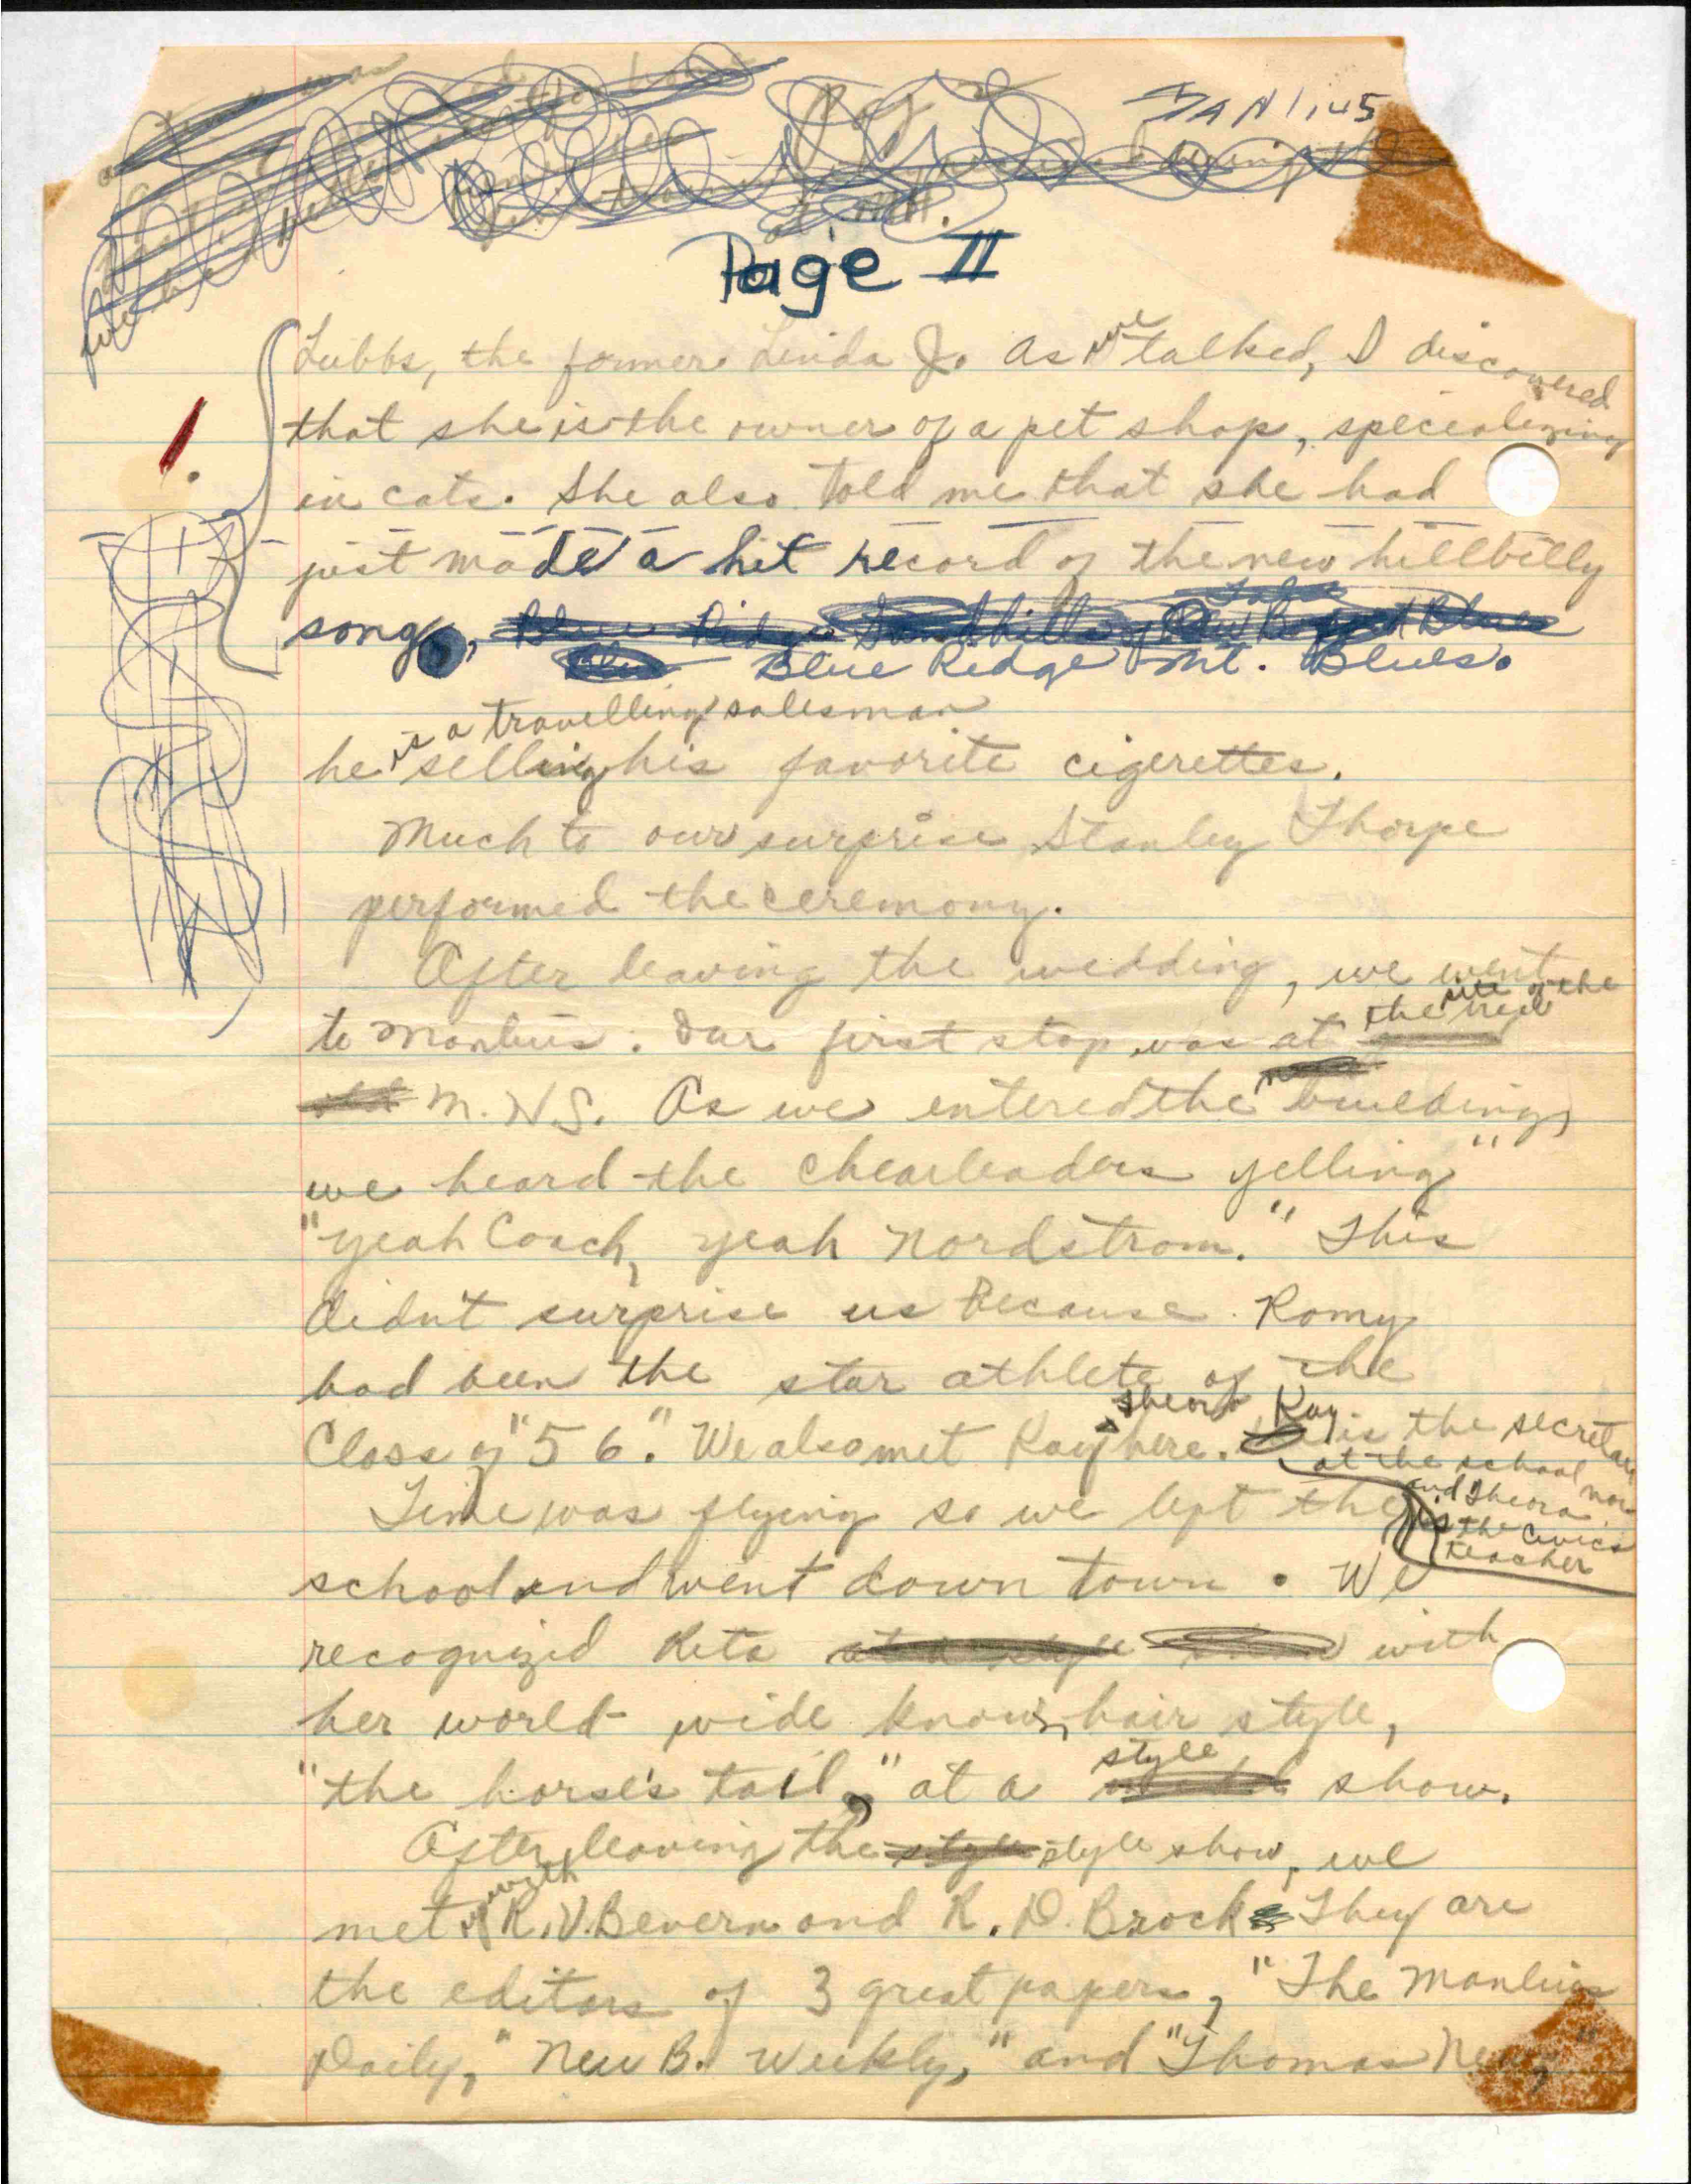 JAN 1, 45
Page II
Lubbs, the former Linda J. As we talked, I discovered
that she is the owner of a pet shop, specializing
in cats. She also told me that she had
just made a hit record of the new hillbilly
song,
Blue Ridge Mt. Blues.
he is a travelling salesman
selling his favorite cigerettes.
Much to our surprise Stanley Thorpe
performed the ceremony.
After leaving the wedding, we went
to Manlius. Our first stop was at the site of the new
M.H.S. As we entered the building,
we heard the chearleaders yelling"
"Yeah Coach, yeah Nordstrom." This
didn't surprise us because Romy
had been the star athlete of the
Class of "56." We also met Kay, Sheora here. Kay is the secretary
at the school now
and Sheora
is the Civics
teacher
Time was flying so we left the
school and went down town. We
recognized Reta with
her world wide known hair style,
"the horse's tail," at a style show.
After leaving the style show, we
met with R.V. Bevern and R. D. Brock They are
the editors of 3 great papers, "The Manlius
Daily," New B. Weekly," and "Thomas News,"